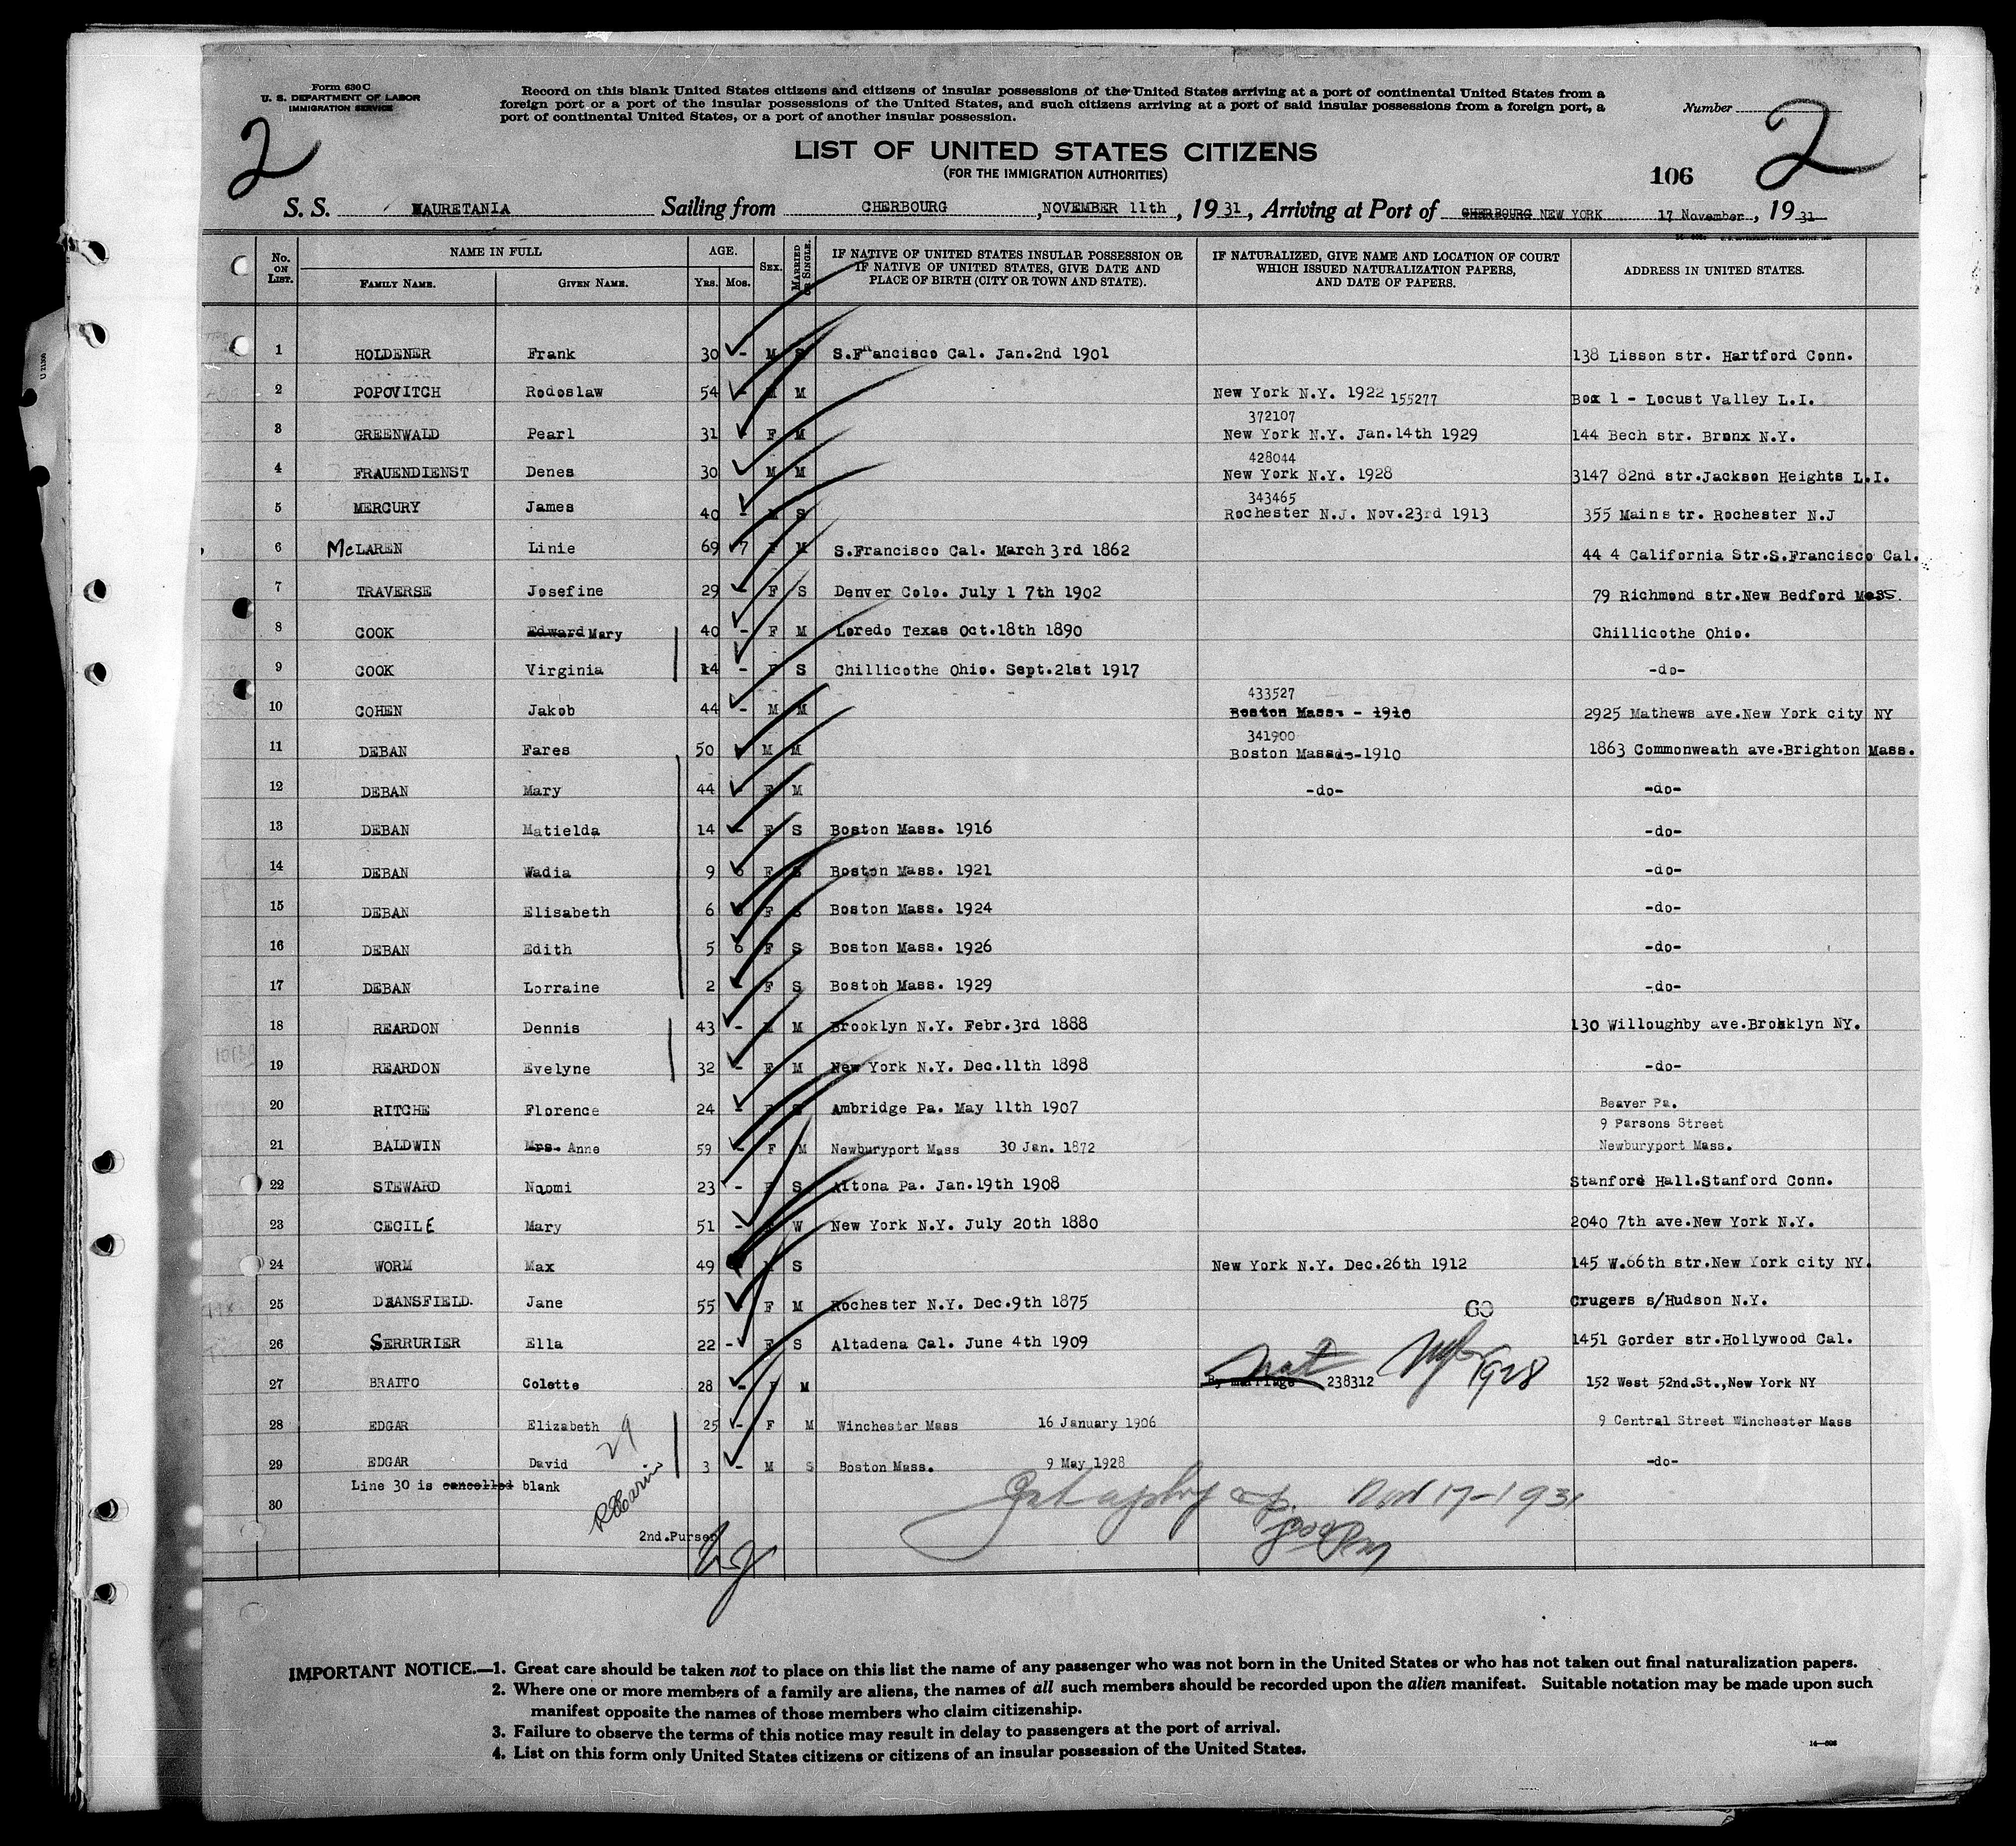 Form 630 C
U. S. DEPARTMENT OF LABOR
IMMIGRATION SERVICE
Record on this blank United States citizens and citizens of insular possessions of the United States arriving at a port of continental United States from a
foreign port or a port of the insular possessions of the United States, and such citizens arriving at a port of said insular possessions from a foreign port, a
port of continental United States, or a port of another insular possession.
Number
2
2
LIST OF UNITED STATES CITIZENS
(FOR THE IMMIGRATION AUTHORITIES)
106
S. S. MAURETANIA Sailing from CHERBOURG, NOVEMBER 11th, 1931, Arriving at Port of CHERBOURG NEW YORK 17 November, 1931
No. ON LIST. NAME IN FULL AGE. SEX. MARRIED OR SINGLE. IF NATIVE OF UNITED STATES INSULAR POSSESSION OR IF NATIVE OF UNITED STATES, GIVE DATE AND PLACE OF BIRTH (CITY OR TOWN AND STATE). IF NATURALIZED, GIVE NAME AND LOCATION OF COURT WHICH ISSUED NATURALIZATION PAPERS, AND DATE OF PAPERS. ADDRESS IN UNITED STATES.
FAMILY NAME. GIVEN NAME. YRS. MOS.
1 HOLDENER Frank 30 - M S S.Francisco Cal. Jan.2nd 1901 138 Lisson str. Hartford Conn.
2 POPOVITCH Rodoslaw 54 - M M New York N.Y. 1922 155277 Box 1 - Locust Valley L.I.
372107
3 GREENWALD Pearl 31 - F M New York N.Y. Jan.14th 1929 144 Bech str. Bronx N.Y.
428044
4 FRAUENDIENST Denes 30 - M M New York N.Y. 1928 3147 82nd str.Jackson Heights L.I.
343465
5 MERCURY James 40 - M S Rochester N.J. Nov.23rd 1913 355 Mainstr. Rochester N.J
6 McLAREN Linie 69 7 F M S.Francisco Cal. March 3rd 1862 44 4 California Str.S.Francisco Cal.
7 TRAVERSE Josefine 29 F S Denver Colo. July 1 7th 1902 79 Richmond str.New Bedford Mass.
8 COOK Edward Mary 40 - F M Loredo Texas Oct.18th 1890 Chillicothe Ohio.
9 COOK Virginia 14 - F S Chillicothe Ohio. Sept.21st 1917 -do-
433527
10 COHEN Jakob 44 - M M Boston Mass. - 1910 2925 Mathews ave.New York city NY
341900
11 DEBAN Fares 50 - M M Boston Mass-do-1910 1863 Commonweath ave.Brighton Mass.
12 DEBAN Mary 44 - F M -do- -do-
13 DEBAN Matielda 14 - F S Boston Mass. 1916 -do-
14 DEBAN Wadia 9 6 F S Boston Mass. 1921 -do-
15 DEBAN Elisabeth 6 6 F S Boston Mass. 1924 -do-
16 DEBAN Edith 5 6 F S Boston Mass. 1926 -do-
17 DEBAN Lorraine 2 - F S Boston Mass. 1929 -do-
18 REARDON Dennis 43 - M M Brooklyn N.Y. Febr.3rd 1888 130 Willoughby ave.Brooklyn NY.
19 REARDON Evelyne 32 - F M New York N.Y. Dec.11th 1898 -do-
20 RITCHE Florence 24 - F S Ambridge Pa. May 11th 1907 Beaver Pa.
9 Parsons Street
21 BALDWIN Mrs. Anne 59 - F M Newburyport Mass 30 Jan. 1872 Newburyport Mass.
22 STEWARD Naomi 23 - F S Altona Pa. Jan.19th 1908 Stanford Hall.Stanford Conn.
23 CECILE Mary 51 - F W New York N.Y. July 20th 1880 2040 7th ave.New York N.Y.
24 WORM Max 49 M S New York N.Y. Dec.26th 1912 145 W.66th str.New York city NY.
25 DEANSFIELD. Jane 55 F M Rochester N.Y. Dec.9th 1875 GO Crugers s/Hudson N.Y.
26 SERRURIER Ella 22 - F S Altadena Cal. June 4th 1909 1451 Gorder str.Hollywood Cal.
27 BRAITO Colette 28 - F M By marriage nat 238312 1928 152 West 52nd.St.,New York NY
28 EDGAR Elizabeth 25 - F M Winchester Mass 16 January 1906 9 Central Street Winchester Mass
29
29 EDGAR David 3 - M S Boston Mass. 9 May 1928 -do-
Line 30 is cancelled blank
30
Nov 17-1931
2nd.Purser
IMPORTANT NOTICE.—1. Great care should be taken not to place on this list the name of any passenger who was not born in the United States or who has not taken out final naturalization papers.
2. Where one or more members of a family are aliens, the names of all such members should be recorded upon the alien manifest. Suitable notation may be made upon such
manifest opposite the names of those members who claim citizenship.
3. Failure to observe the terms of this notice may result in delay to passengers at the port of arrival.
4. List on this form only United States citizens or citizens of an insular possession of the United States.